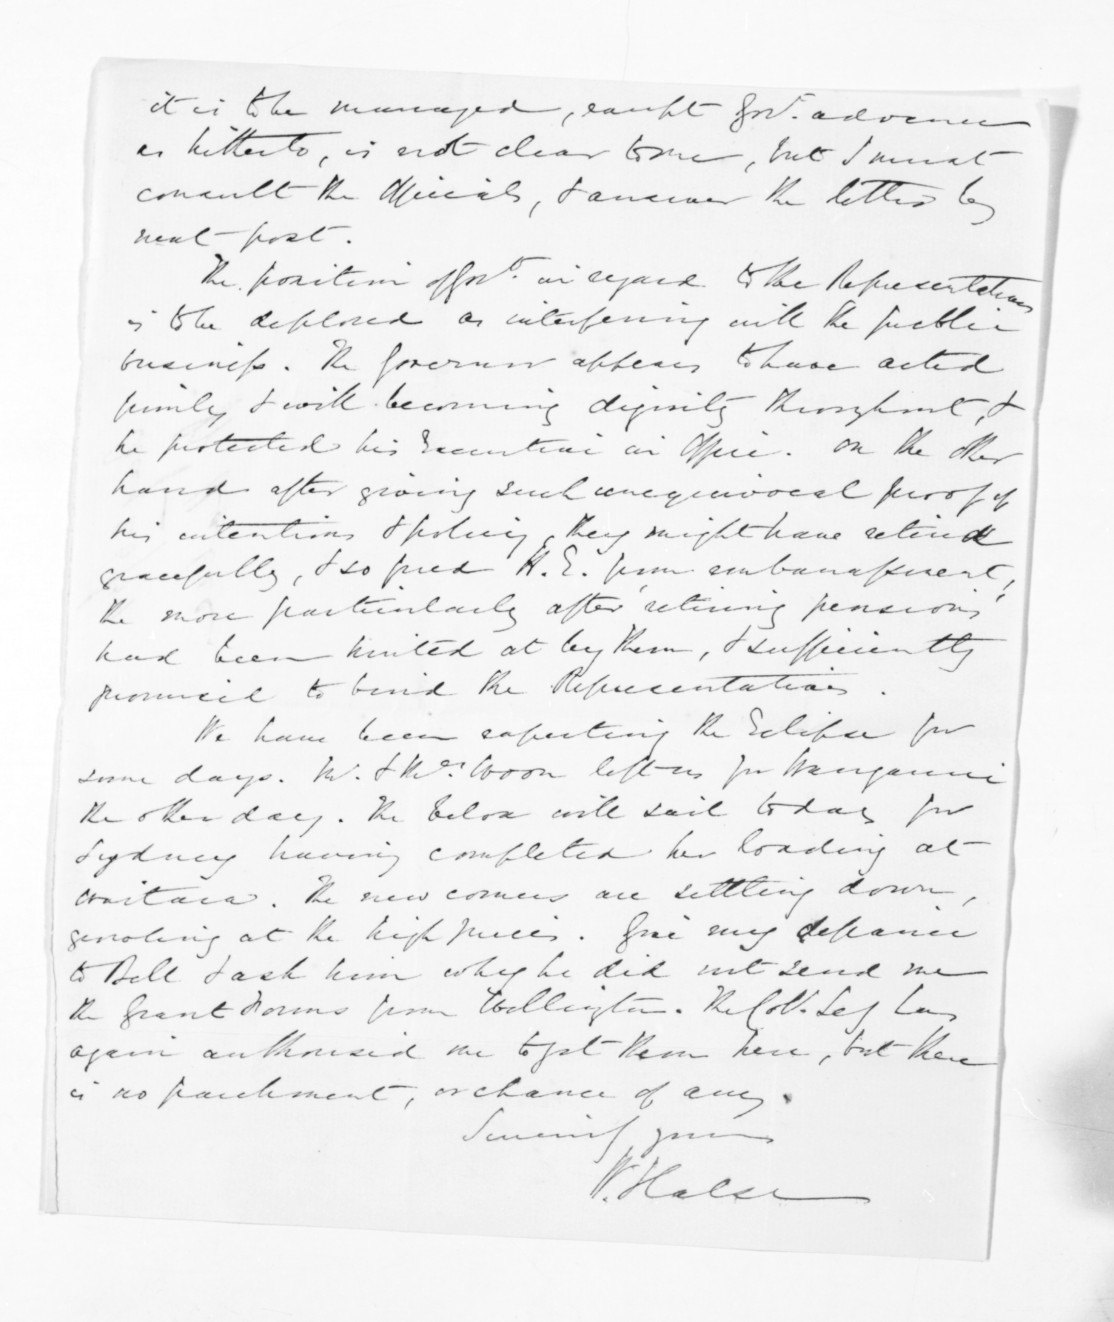 it is to be managed, except Govt. advance
as hitherto, is not clear to me, but I must
consult the Officials, & answer the letter by
next post.
The position of Govt. in regard to the Representatives
is to be deplored as interfering with the public
business. The Governor appears to have acted
firmly & with becoming dignity throughout, &
he protected his Executive in Office. On the other
hand after giving such unequivocal proof of
his intentions & policy, they might have retired
gracefully, & so freed H.E. from embarrassment,
the more particularly after 'retiring pensions'
had been hinted at by them, & sufficiently
promised to bind the Representatives.
We have been expecting the Eclipse for
some days. Mr. & Mrs. Woon left us for Wanganui
the other day. The will sail today for
Sydney having completed her loading at
Waitara. The new comers are settling down,
growling at the high prices. Give my defiance
to Bell & ask him why he did not send me
the Grant Forms from Wellington. The Col. Sey has
again authorised me to get them here, but there
is no parchment, or chance of any.
Sincerely yours
H. Halse